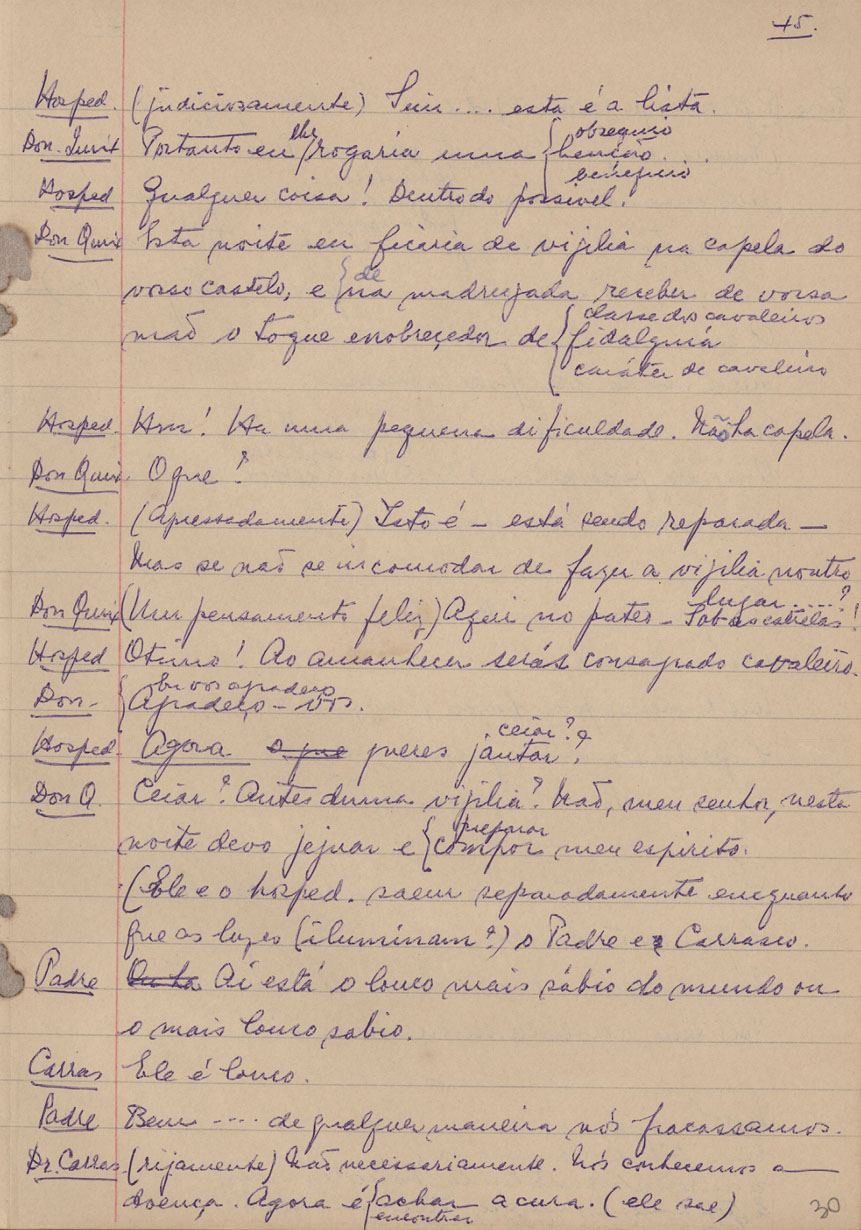 45.
Hosped. (judiciosamente) Sim .... esta é a lista.
Don. Quix Portanto eu lhe rogaria uma { obsequio
benção ...
beneficio
Hosped Qualquer coisa! Dentro do possivel.
Don Quix Esta noite eu ficaria de vijilia na capela do
vosso castelo, e { de
na madrujada receber de vossa
mão o toque enobreçedor de { classe dos cavaleiros
fidalguia
caráter de cavaleiro
Hosped. Hm! Ha uma pequena dificuldade. Não ha capela.
Don Quix. O que?
Hosped. (Apressadamente) Isto é - está sendo reparada -
Mas se não se incomodar de fazer a vijilia noutro
lugar ....?
Don Quix (Um pensamento feliz) Aqui no pateo - Sob as estrelas!
Hosped Otimo! Ao amanhecer serás consagrado cavaleiro.
Don. { Eu vos agradeço
Agradeço - vos.
Hosped. Agora o que queres jantar?
ceiar?
Don Q. Ceiar? Antes duma vijilia? Não, meu senhor, nesta
noite devo jejuar e { preparar
compor meu espirito.
(Ele e o hosped. saem separadamente enquanto
que as luzes (iluminam?) o Padre e Carrasco.
Padre Aí está o louco mais sábio do mundo ou
o mais louco sabio.
Carras Ele é louco.
Padre Bem .... de qualquer maneira nós fracassamos.
Dr. Carras. (rijamente) Não necessariamente. Nós conhecemos a
doença. Agora é { achar
encontrar a cura. (ele sae)
30